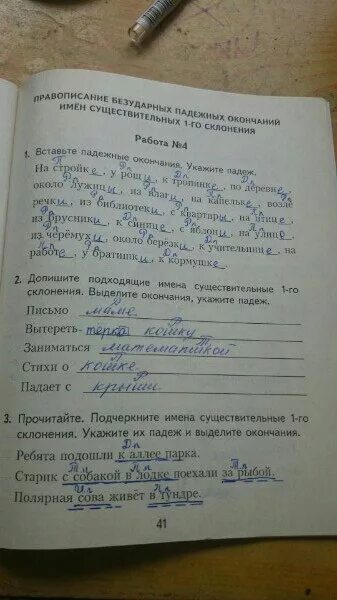 ПРАВОПИСАНИЕ БЕЗУДАРНЫХ ПАДЕЖНЫХ ОКОНЧАНИЙ
ИМЁН СУЩЕСТВИТЕЛЬНЫХ 1-ГО СКЛОНЕНИЯ
Работа №4
1. Вставьте падежные окончания. Укажите падеж.
На стройке, у рощи, к тропинке, по деревне,
около лужицы, из влаги, на капельке, возле
речки, из библиотеки, с квартиры, на птице,
из брусники, к синице, с яблони, на улице,
из черёмухи, около берёзки, к учительнице, на
работе, у братишки, к кормушке.
2. Допишите подходящие имена существительные 1-го
склонения. Выделите окончания, укажите падеж.
Письмо маме
Вытереть кошку
Заниматься математикой
Стихи о кошке
Падает с крыши
3. Прочитайте. Подчеркните имена существительные 1-го
склонения. Укажите их падеж и выделите окончания.
Дп
Ребята подошли к аллее парка.
Тп Пп Тп
Старик с собакой в лодке поехали за рыбой.
Ип Пп
Полярная сова живёт в тундре.
41